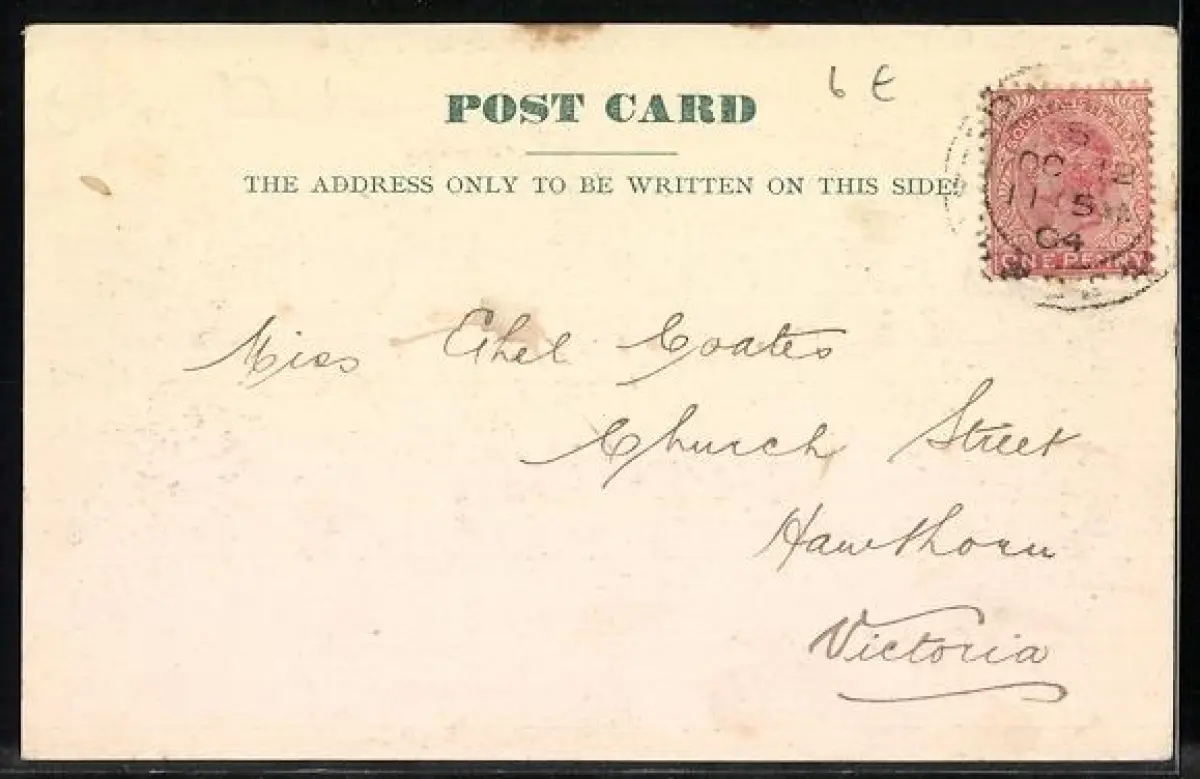 6 E
POST CARD
THE ADDRESS ONLY TO BE WRITTEN ON THIS SIDE.
SOUTH AUSTRALIA
S
OC 12
04
ONE PENNY
Miss Ethel Coates
Church Street
Hawthorn
Victoria